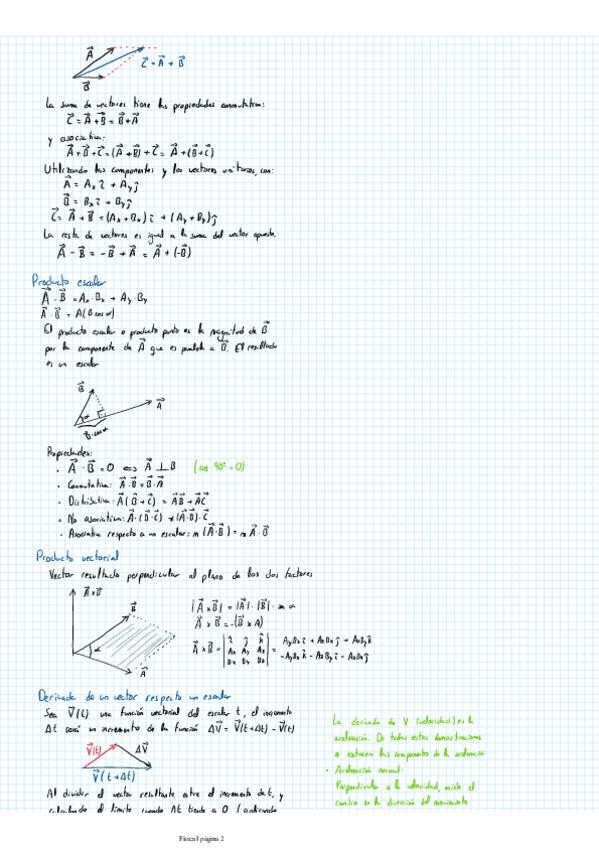 A⃗
C⃗ = A⃗ + B⃗
B⃗
La suma de vectores tiene las propiedades conmutativa:
C⃗ = A⃗ + B⃗ = B⃗ + A⃗
y asociativa:
A⃗ + B⃗ + C⃗ = (A⃗ + B⃗) + C⃗ = A⃗ + (B⃗ + C⃗)
Utilizando las componentes y los vectores unitarios, con:
A⃗ = Ax î + Ay ĵ
B⃗ = Bx î + By ĵ
C⃗ = A⃗ + B⃗ = (Ax + Bx) î + (Ay + By) ĵ
La resta de vectores es igual a la suma del vector opuesto.
A⃗ - B⃗ = -B⃗ + A⃗ = A⃗ + (-B⃗)
Producto escalar
A⃗ · B⃗ = Ax · Bx + Ay · By
A⃗ · B⃗ = A(B cos α)
El producto escalar o producto punto es la magnitud de B⃗
por la componente de A⃗ que es paralela a B⃗. El resultado
es un escalar
B⃗
α
A⃗
B⃗ · cos α
Propiedades:
· A⃗ · B⃗ = 0 ⇔ A⃗ ⊥ B (cos 90° = 0)
· Conmutativa: A⃗ · B⃗ = B⃗ · A⃗
· Distributiva: A⃗ (B⃗ + C⃗) = A⃗B⃗ + A⃗C⃗
· No asociativa: A⃗ · (B⃗ · C⃗) ≠ (A⃗ · B⃗) · C⃗
· Asociativa respecto a un escalar: m (A⃗ · B⃗) = m A⃗ · B⃗
Producto vectorial
Vector resultado perpendicular al plano de los dos factores
A⃗ x B⃗
B⃗
α
A⃗
|A⃗ x B⃗| = |A⃗| · |B⃗| · α
A⃗ x B⃗ = -(B⃗ x A)
A⃗ x B⃗ = | î ĵ k̂ |
| Ax Ay Az |
| Bx By Bz |
Derivada de un vector respecto un escalar
Sea V⃗(t) una función vectorial del escalar t, el incremento
Δt será un incremento de la función ΔV⃗ = V⃗(t+Δt) - V⃗(t)
V⃗(t)
ΔV⃗
V⃗(t+Δt)
Al dividir el vector resultante entre el incremento de t, y
calculando el límite cuando Δt tiende a 0
La derivada de V (velocidad) es la
aceleración. De todas estas demostraciones
se extraen las componentes de la aceleración
· Aceleración normal:
Perpendicular a la velocidad, mide el
cambio en la dirección del movimiento
Física I página 2